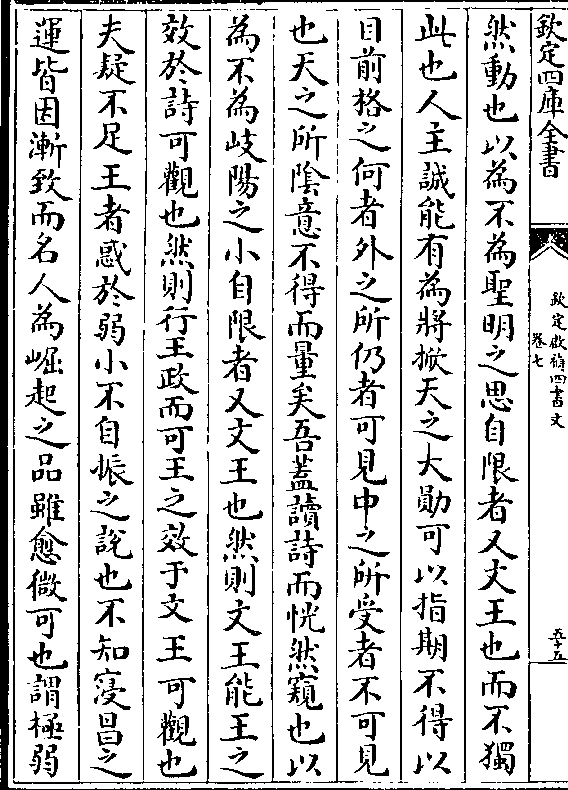 欽定四庫全書
欽定啟禎四書文
卷七
五十五
然動也以為不為聖明之思自限者又文王也而不獨
此也人主誠能有為將掀天之大勛可以指期不得以
目前格之何者外之所仍者可見中之所受者不可見
也天之所陰意不得而量矣吾蓋讀詩而恍然窺也以
為不為岐陽之小自限者又文王也然則文王能王之
效於詩可觀也然則行王政而可王之效于文王可觀也
夫疑不足王者惑於弱小不自振之說也不知寖昌之
運皆因漸致而名人為崛起之品雖愈微可也謂極弱